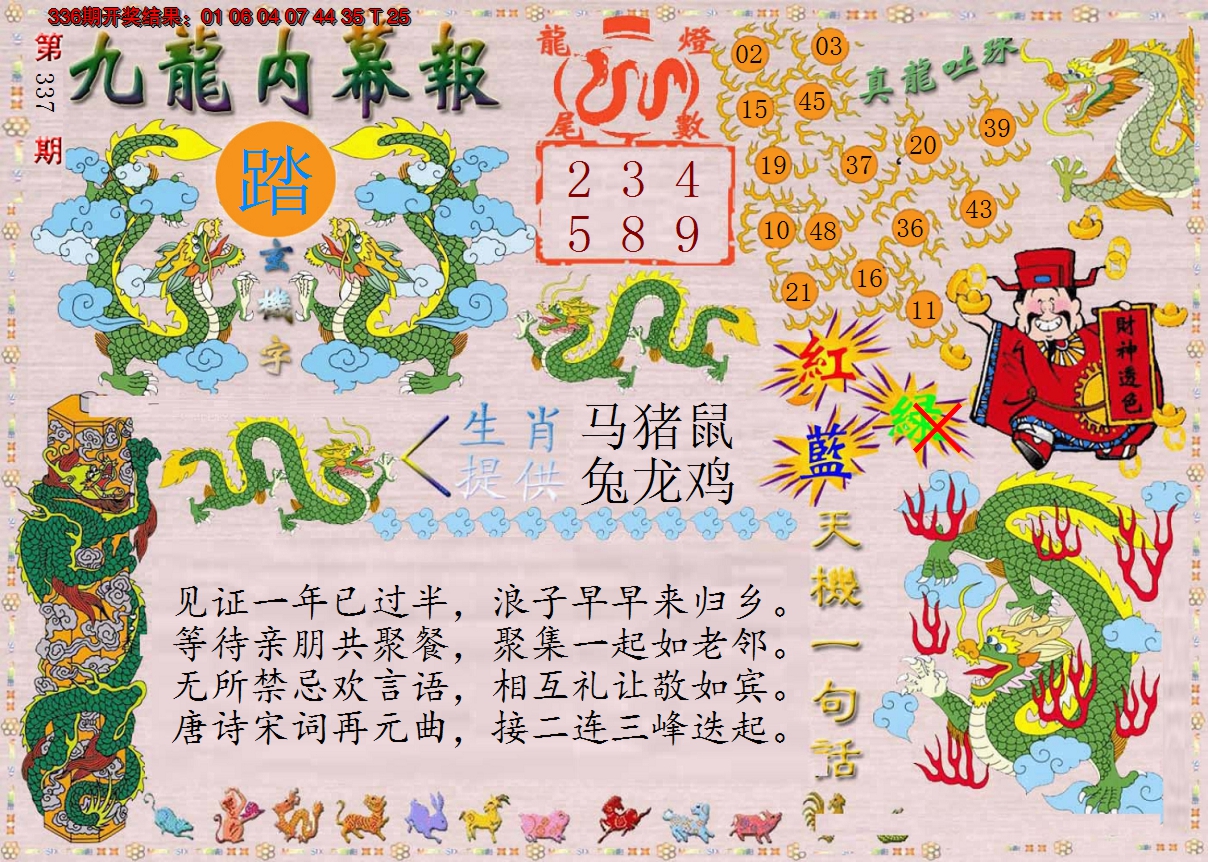 336期开奖结果：01 06 04 07 44 35 T 25
第337期
九龍内幕報
踏
玄機字
龍燈尾數
2 3 4
5 8 9
真龍吐珠
02 03
15 45
20 39
19 37
10 48 36 43
21 16 11
財神透色
紅
綠
藍
生肖提供
马猪鼠
兔龙鸡
天機一句话
见证一年已过半，浪子早早来归乡。
等待亲朋共聚餐，聚集一起如老邻。
无所禁忌欢言语，相互礼让敬如宾。
唐诗宋词再元曲，接二连三峰迭起。